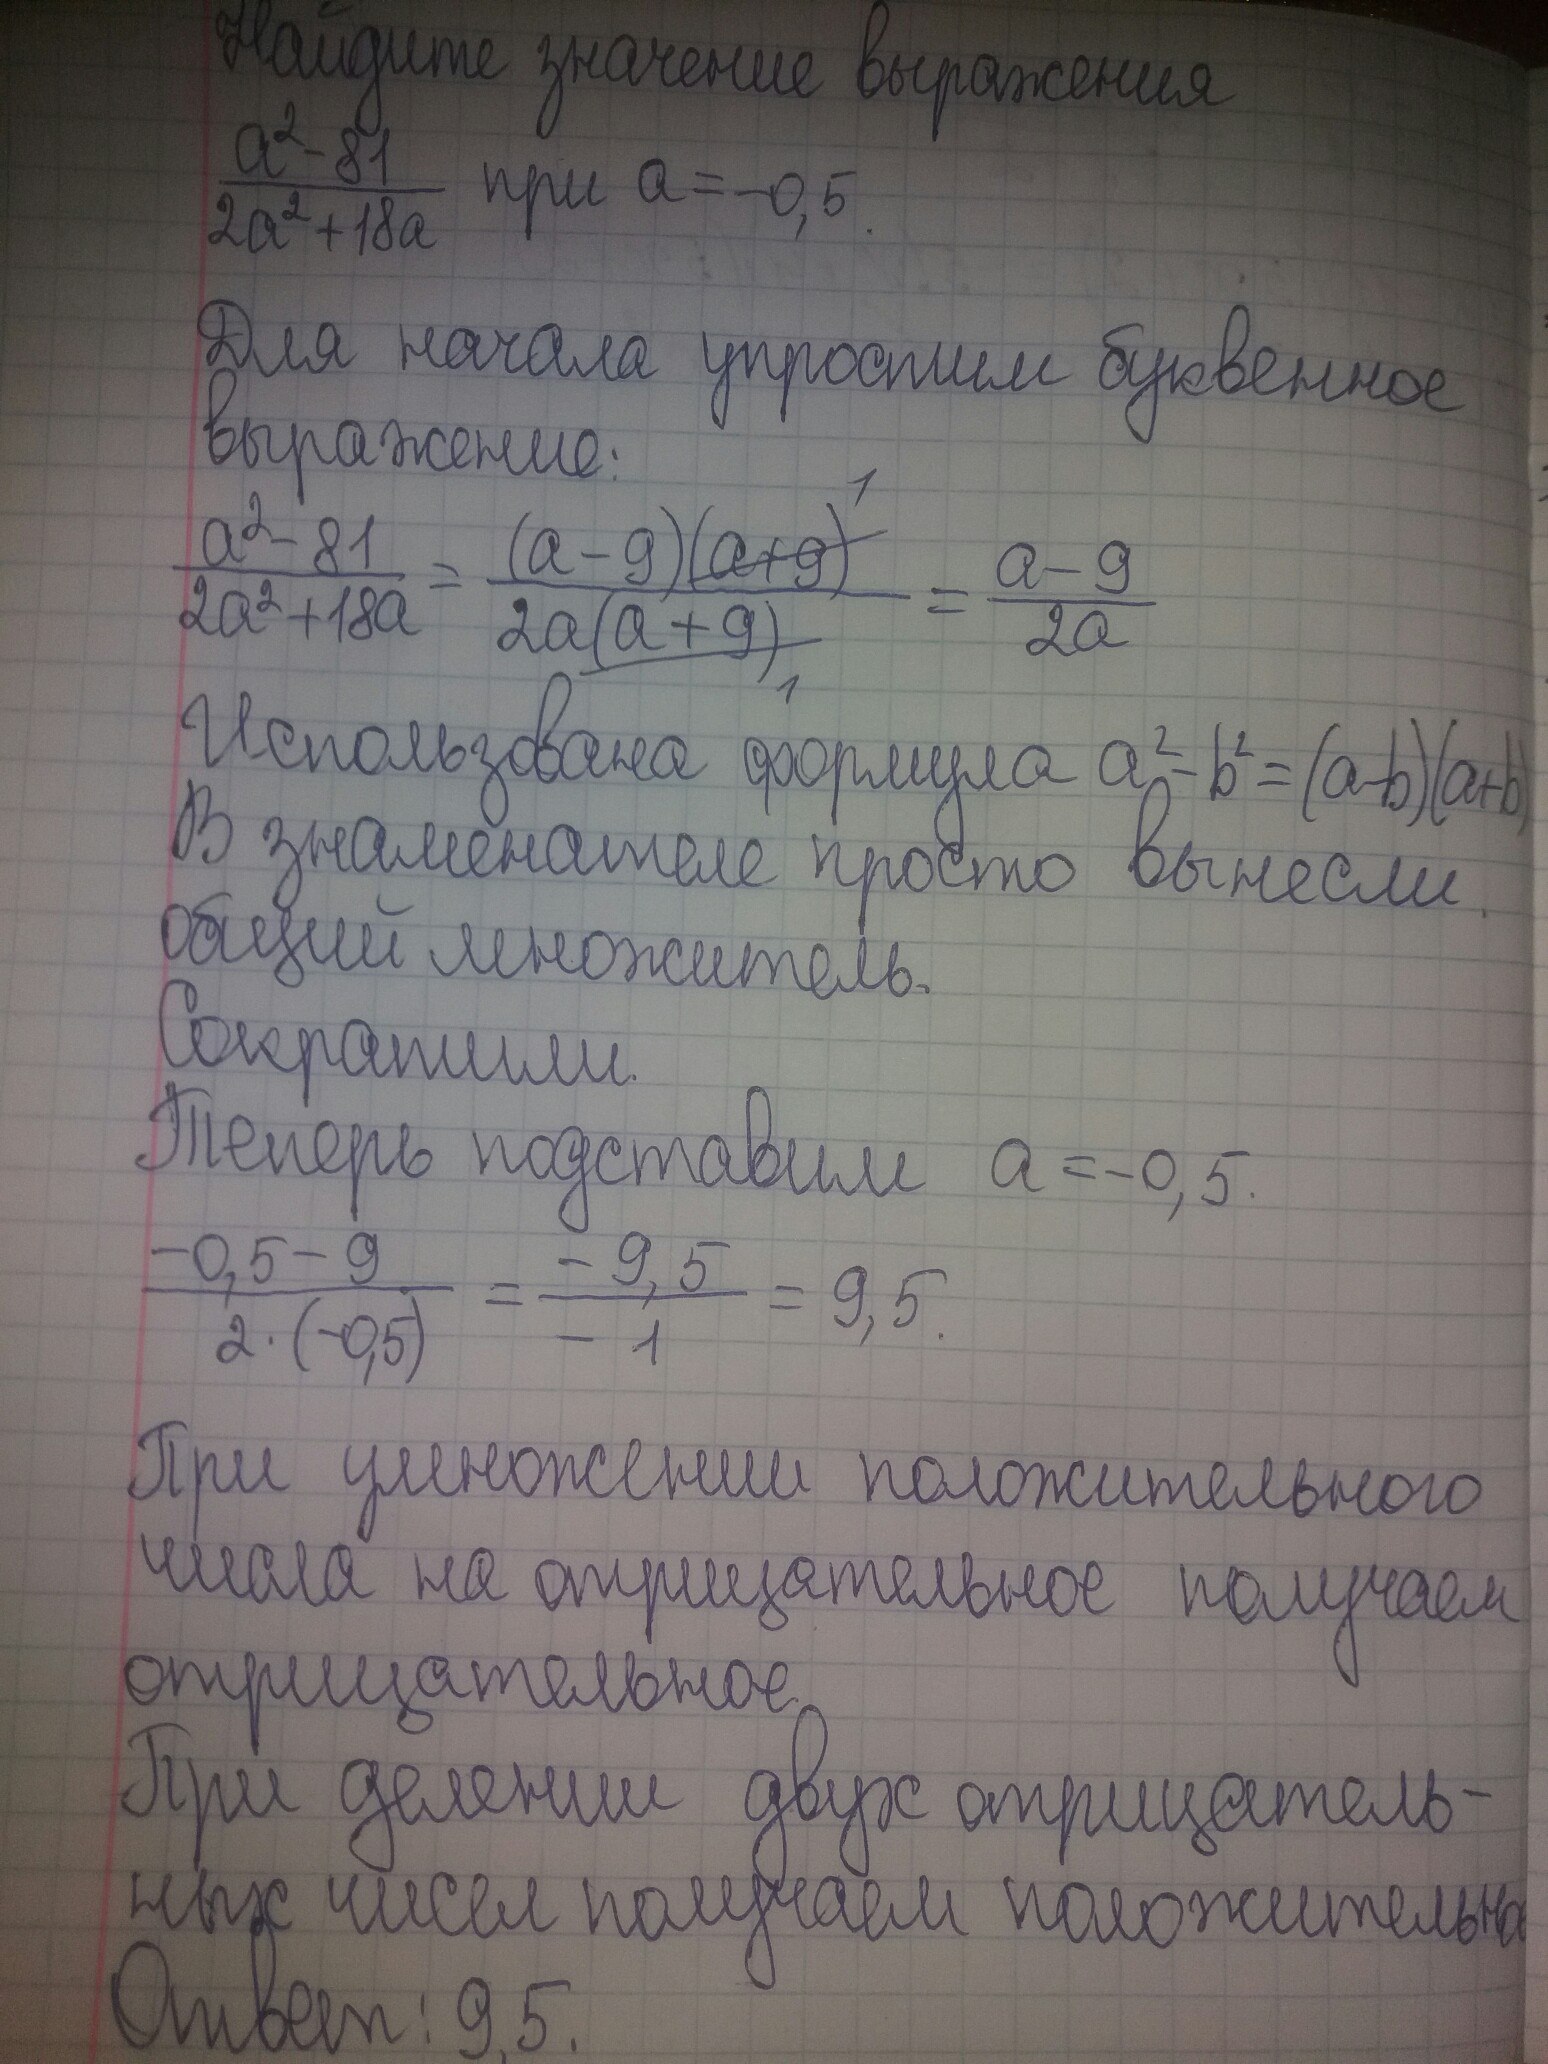 Найдите значение выражения
(a²-81)/(2a²+18a) при a=-0,5.
Для начала упростим буквенное
выражение:
(a²-81)/(2a²+18a) = ((a-9)(a+9)¹)/(2a(a+9)₁) = (a-9)/(2a)
Использована формула a²-b²=(a-b)(a+b)
В знаменателе просто вынесли
общий множитель.
Сократили.
Теперь подставим a=-0,5.
(-0,5-9)/(2·(-0,5)) = (-9,5)/(-1) = 9,5.
При умножении положительного
числа на отрицательное получаем
отрицательное.
При делении двух отрицатель-
ных чисел получаем положительно
Ответ: 9,5.